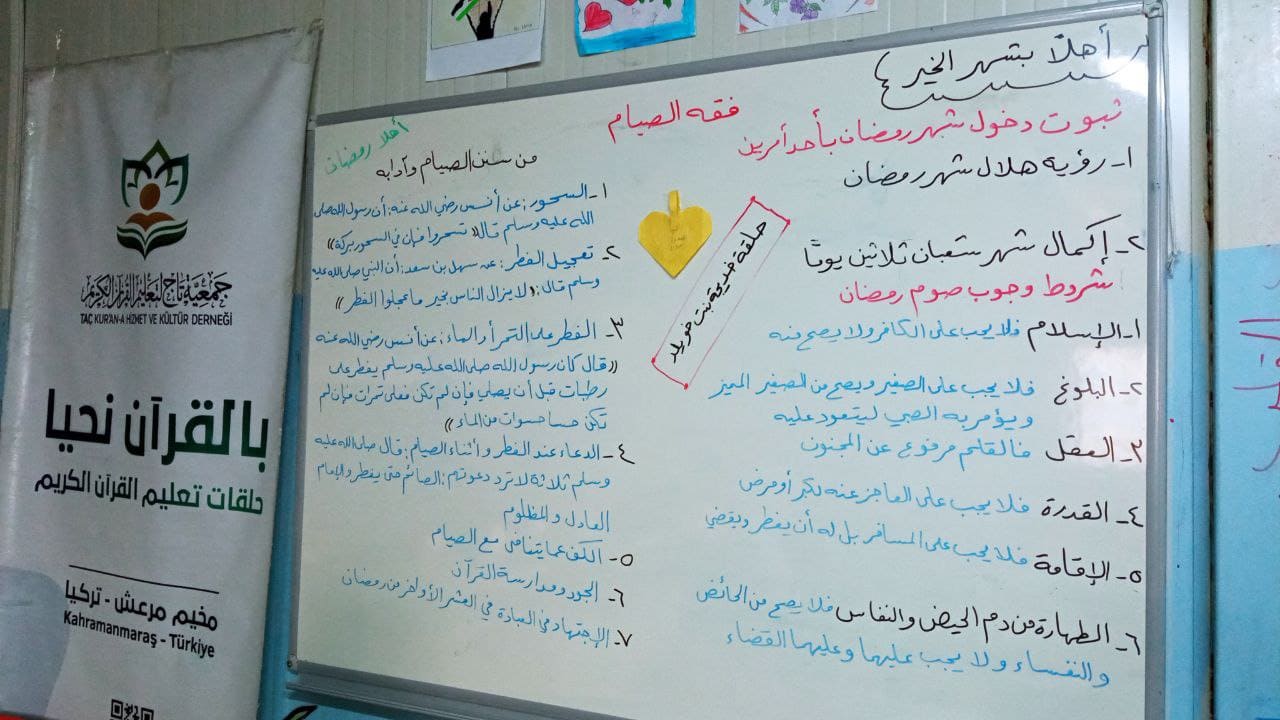 أهلاً بشهر الخير
فقه الصيام
أهلا رمضان
ثبوت دخول شهر رمضان بأحد أمرين
١- رؤية هلال شهر رمضان
٢- إكمال شهر شعبان ثلاثين يومًا
شروط وجوب صوم رمضان
١- الإسلام فلا يجب على الكافر ولا يصح منه
٢- البلوغ فلا يجب على الصغير ويصح من الصغير المميز
ويؤمر به الصبي ليتعود عليه
٣- العقل فالقلم مرفوع عن المجنون
٤- القدرة فلا يجب على العاجز عنه لكبر أو مرض
٥- الإقامة فلا يجب على المسافر بل له أن يفطر ويقضي
٦- الطهارة من دم الحيض والنفاس فلا يصح من الحائض
والنفساء ولا يجب عليهما وعليهما القضاء
حلقة خديجة بنت خويلد
من سنن الصيام وآدابه
١- السحور: عن أنس رضي الله عنه: أن رسول الله صلى
الله عليه وسلم قال« تسحروا فإن في السحور بركة»
٢- تعجيل الفطر: عن سهل بن سعد: أن النبي صلى الله عليه
وسلم قال: «لا يزال الناس بخير ما عجلوا الفطر»
٣- الفطر على التمر أو الماء: عن أنس رضي الله عنه
«قال كان رسول الله صلى الله عليه وسلم يفطر على
رطبات قبل أن يصلي فإن لم تكن فعلى تمرات فإن لم
تكن حسا حسوات من الماء»
٤- الدعاء عند الفطر وأثناء الصيام: قال صلى الله عليه
وسلم ثلاثة لا ترد دعوتهم: الصائم حتى يفطر والإمام
العادل والمظلوم
٥- الكف عما يتنافى مع الصيام
٦- الجود ومدارسة القرآن
٧- الإجتهاد في العبادة في العشر الأواخر من رمضان
جمعية تاج لتعليم القرآن الكريم
TAÇ KUR'AN-A HİZMET VE KÜLTÜR DERNEĞİ
بالقرآن نحيا
حلقات تعليم القرآن الكريم
مخيم مرعش - تركيا
Kahramanmaraş - Türkiye